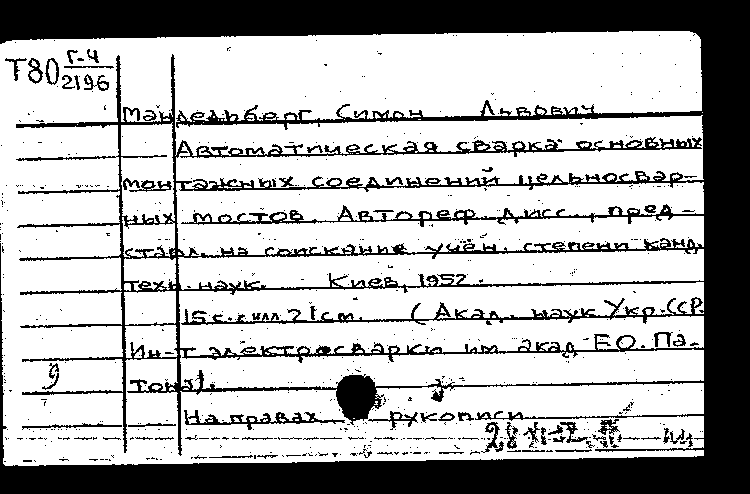 Т80 Г-4
2196
Мандельберг, Симон Львович
Автоматическая сварка основных
монтажных соединений цельносвар-
ных мостов. Автореф. дисс., пред-
ставл. на соискание учён. степени канд.
техн. наук. Киев, 1952.
15 с. с илл. 21 см. (Акад. наук Укр.ССР.
Ин-т электросварки им. акад. Е.О. Па-
9 тона).
На правах рукописи
28